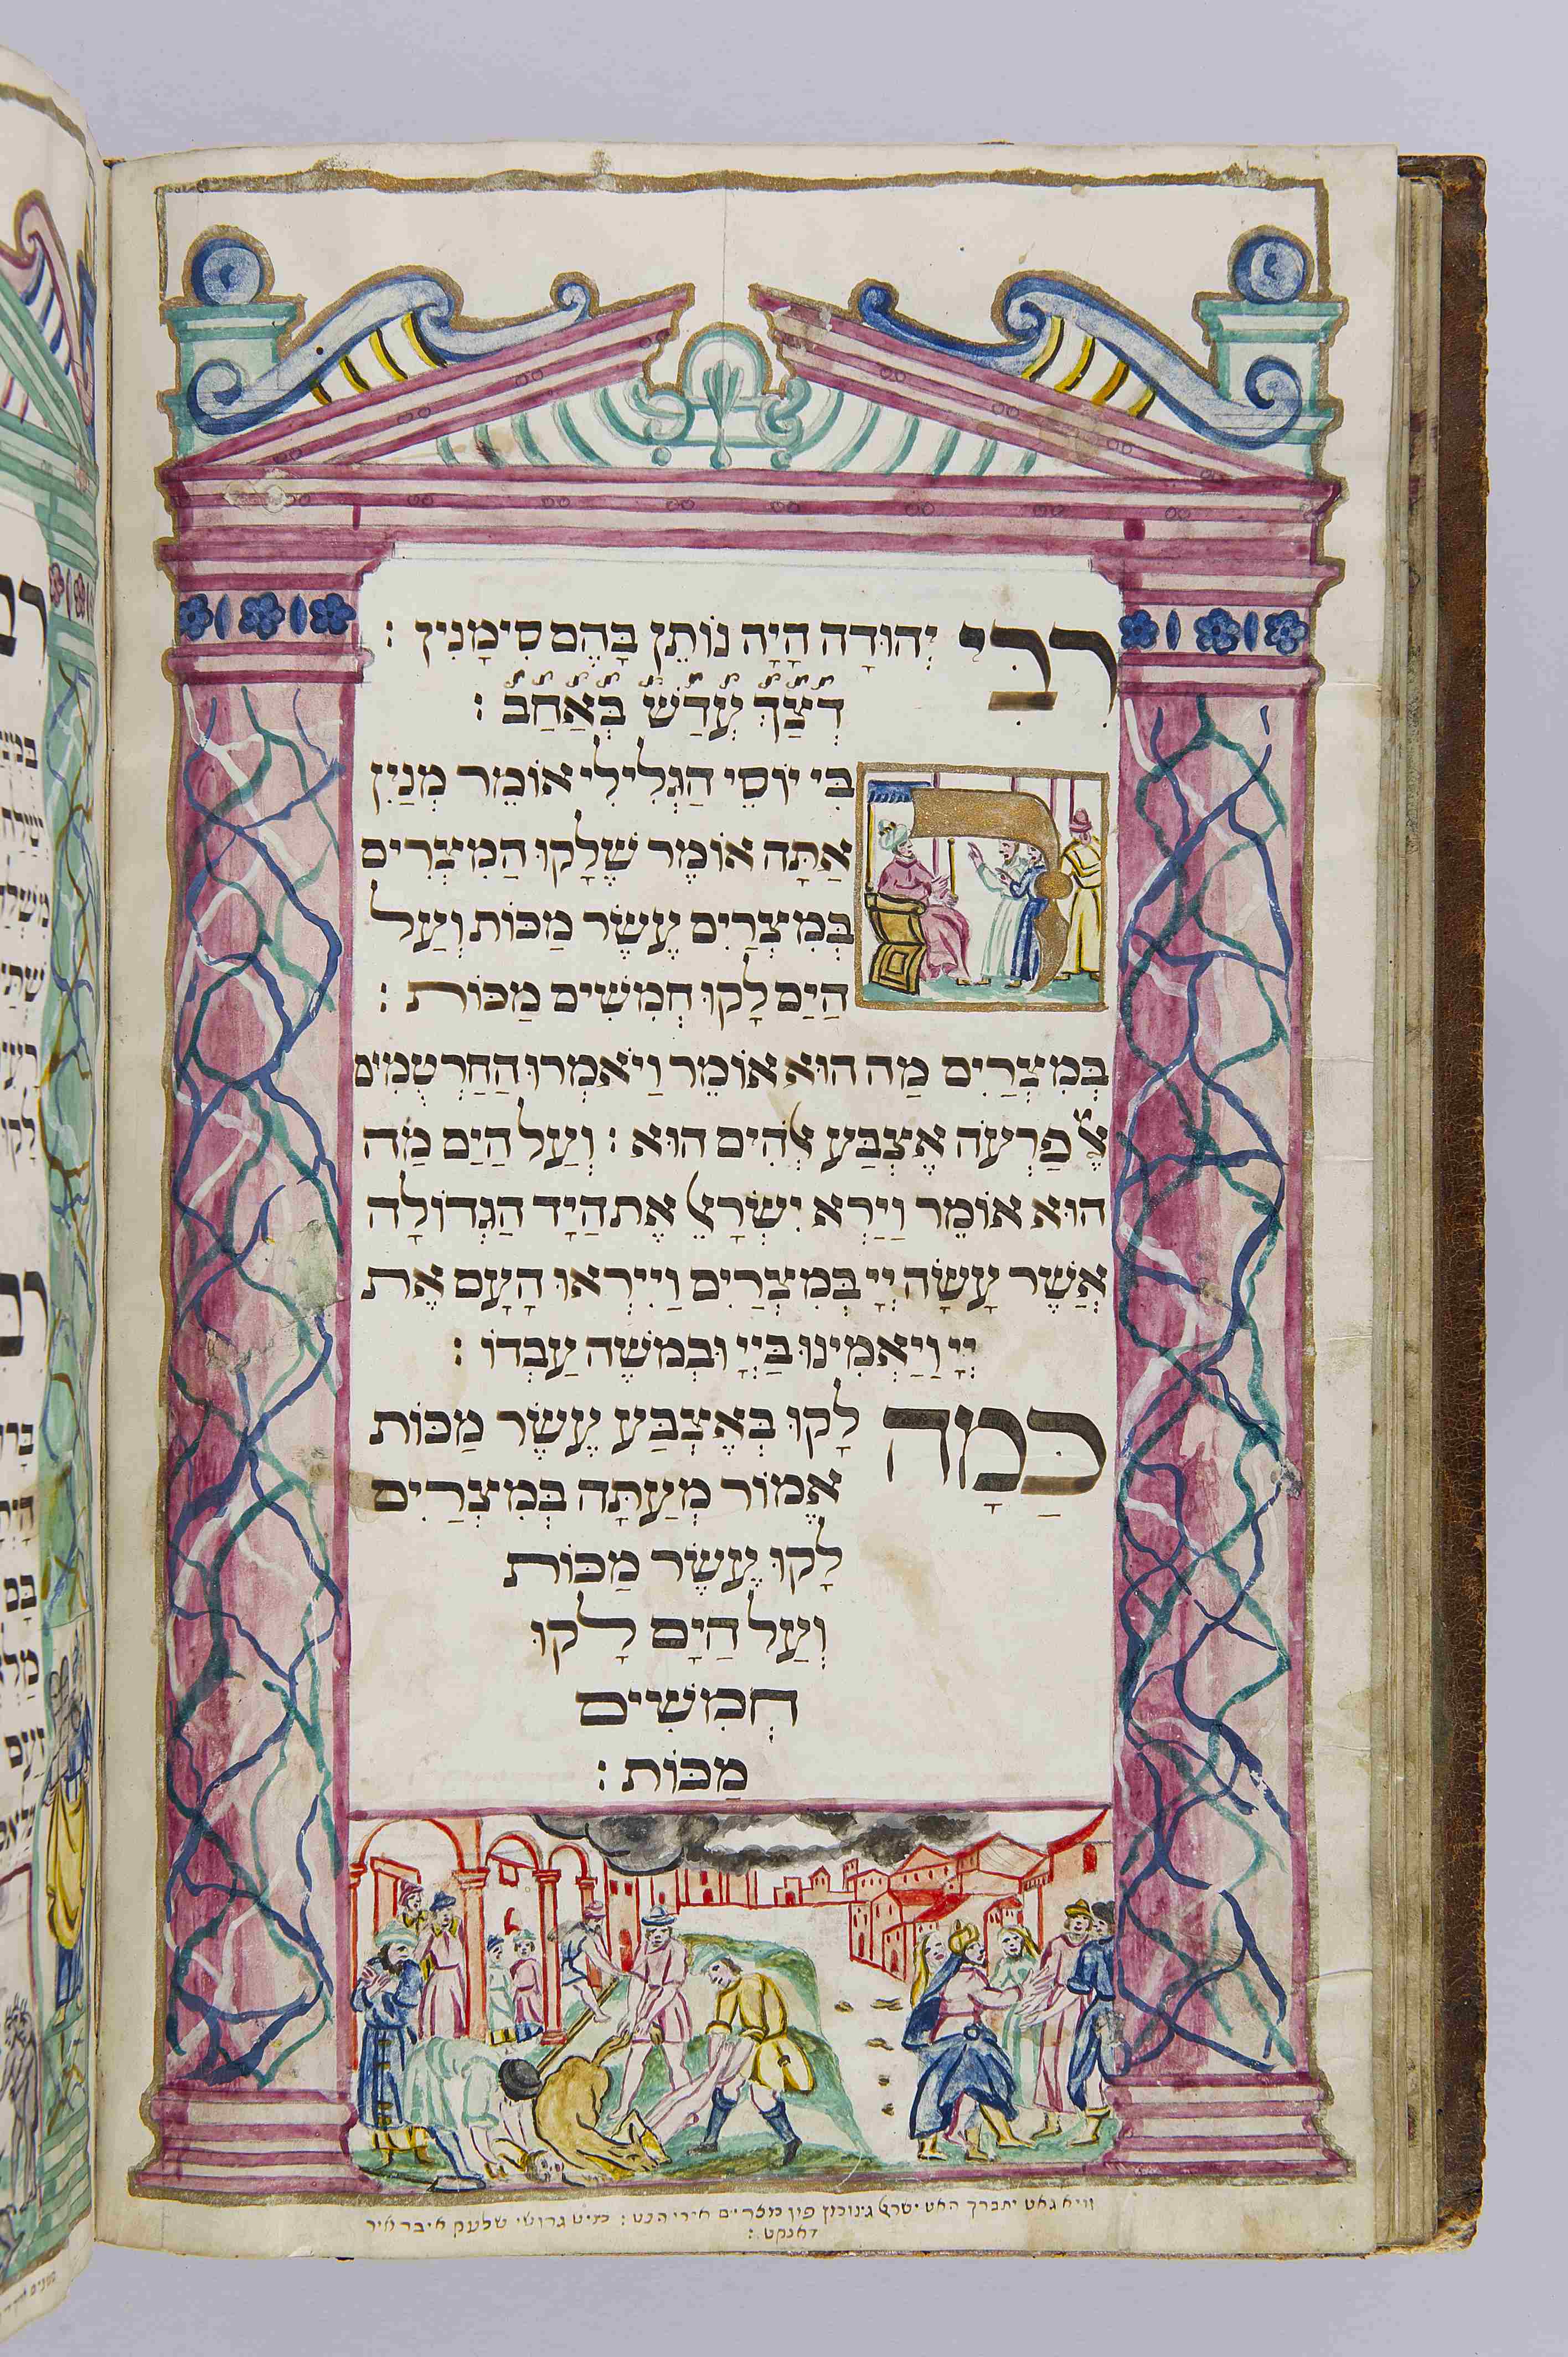 רַבִּי יְהוּדָה הָיָה נוֹתֵן בָּהֶם סִימָנִין :
דְצַךְ עֲדַשׁ בְּאַחַב :
רבִּי יוֹסֵי הַגְּלִילִי אוֹמֵר מְנַיִן
אַתָּה אוֹמֶר שֶׁלָקוּ הַמִצְרִים
בְּמִצְרַיִם עֶשֶׂר מַכּוֹת וְעַל
הַיַם לָקוּ חְמִשִׁים מַכּוֹת :
בְּמִצְרַיִם מַה הוּא אוֹמֵר וַיֹאמְרוּ הַחַרְטֻמִים
אֶל פַרְעֹה אֶצְבַּע אֱלֹהִים הוּא : וְעַל הַיַם מַה
הוּא אוֹמֵר וַיַרְא יִשְׂרָאֵל אֶת הַיָד הַגְדוֹלָה
אְַשֶׁר עָשָׂה יְיָ בְּמִצְרַיִם וַיִירְאוּ הָעָם אֶת
יְיָ וַיַאְמִינוּ בַּיְיָ וּבְמֹשֶׁה עַבְדוֹ :
כַּמָה לָקוּ בְּאֶצְבַּע עֶשֶׂר מַכּוֹת
אֱמוֹר מְעַתָּה בְּמִצְרַיִם
לָקוּ עֶשֶׂר מַכּוֹת
וְעַל הַיָם לָקוּ
חְמִשִׁים
מַכּוֹת :
וויא גאט יתברך האט ישראל גינומן פון מצרים